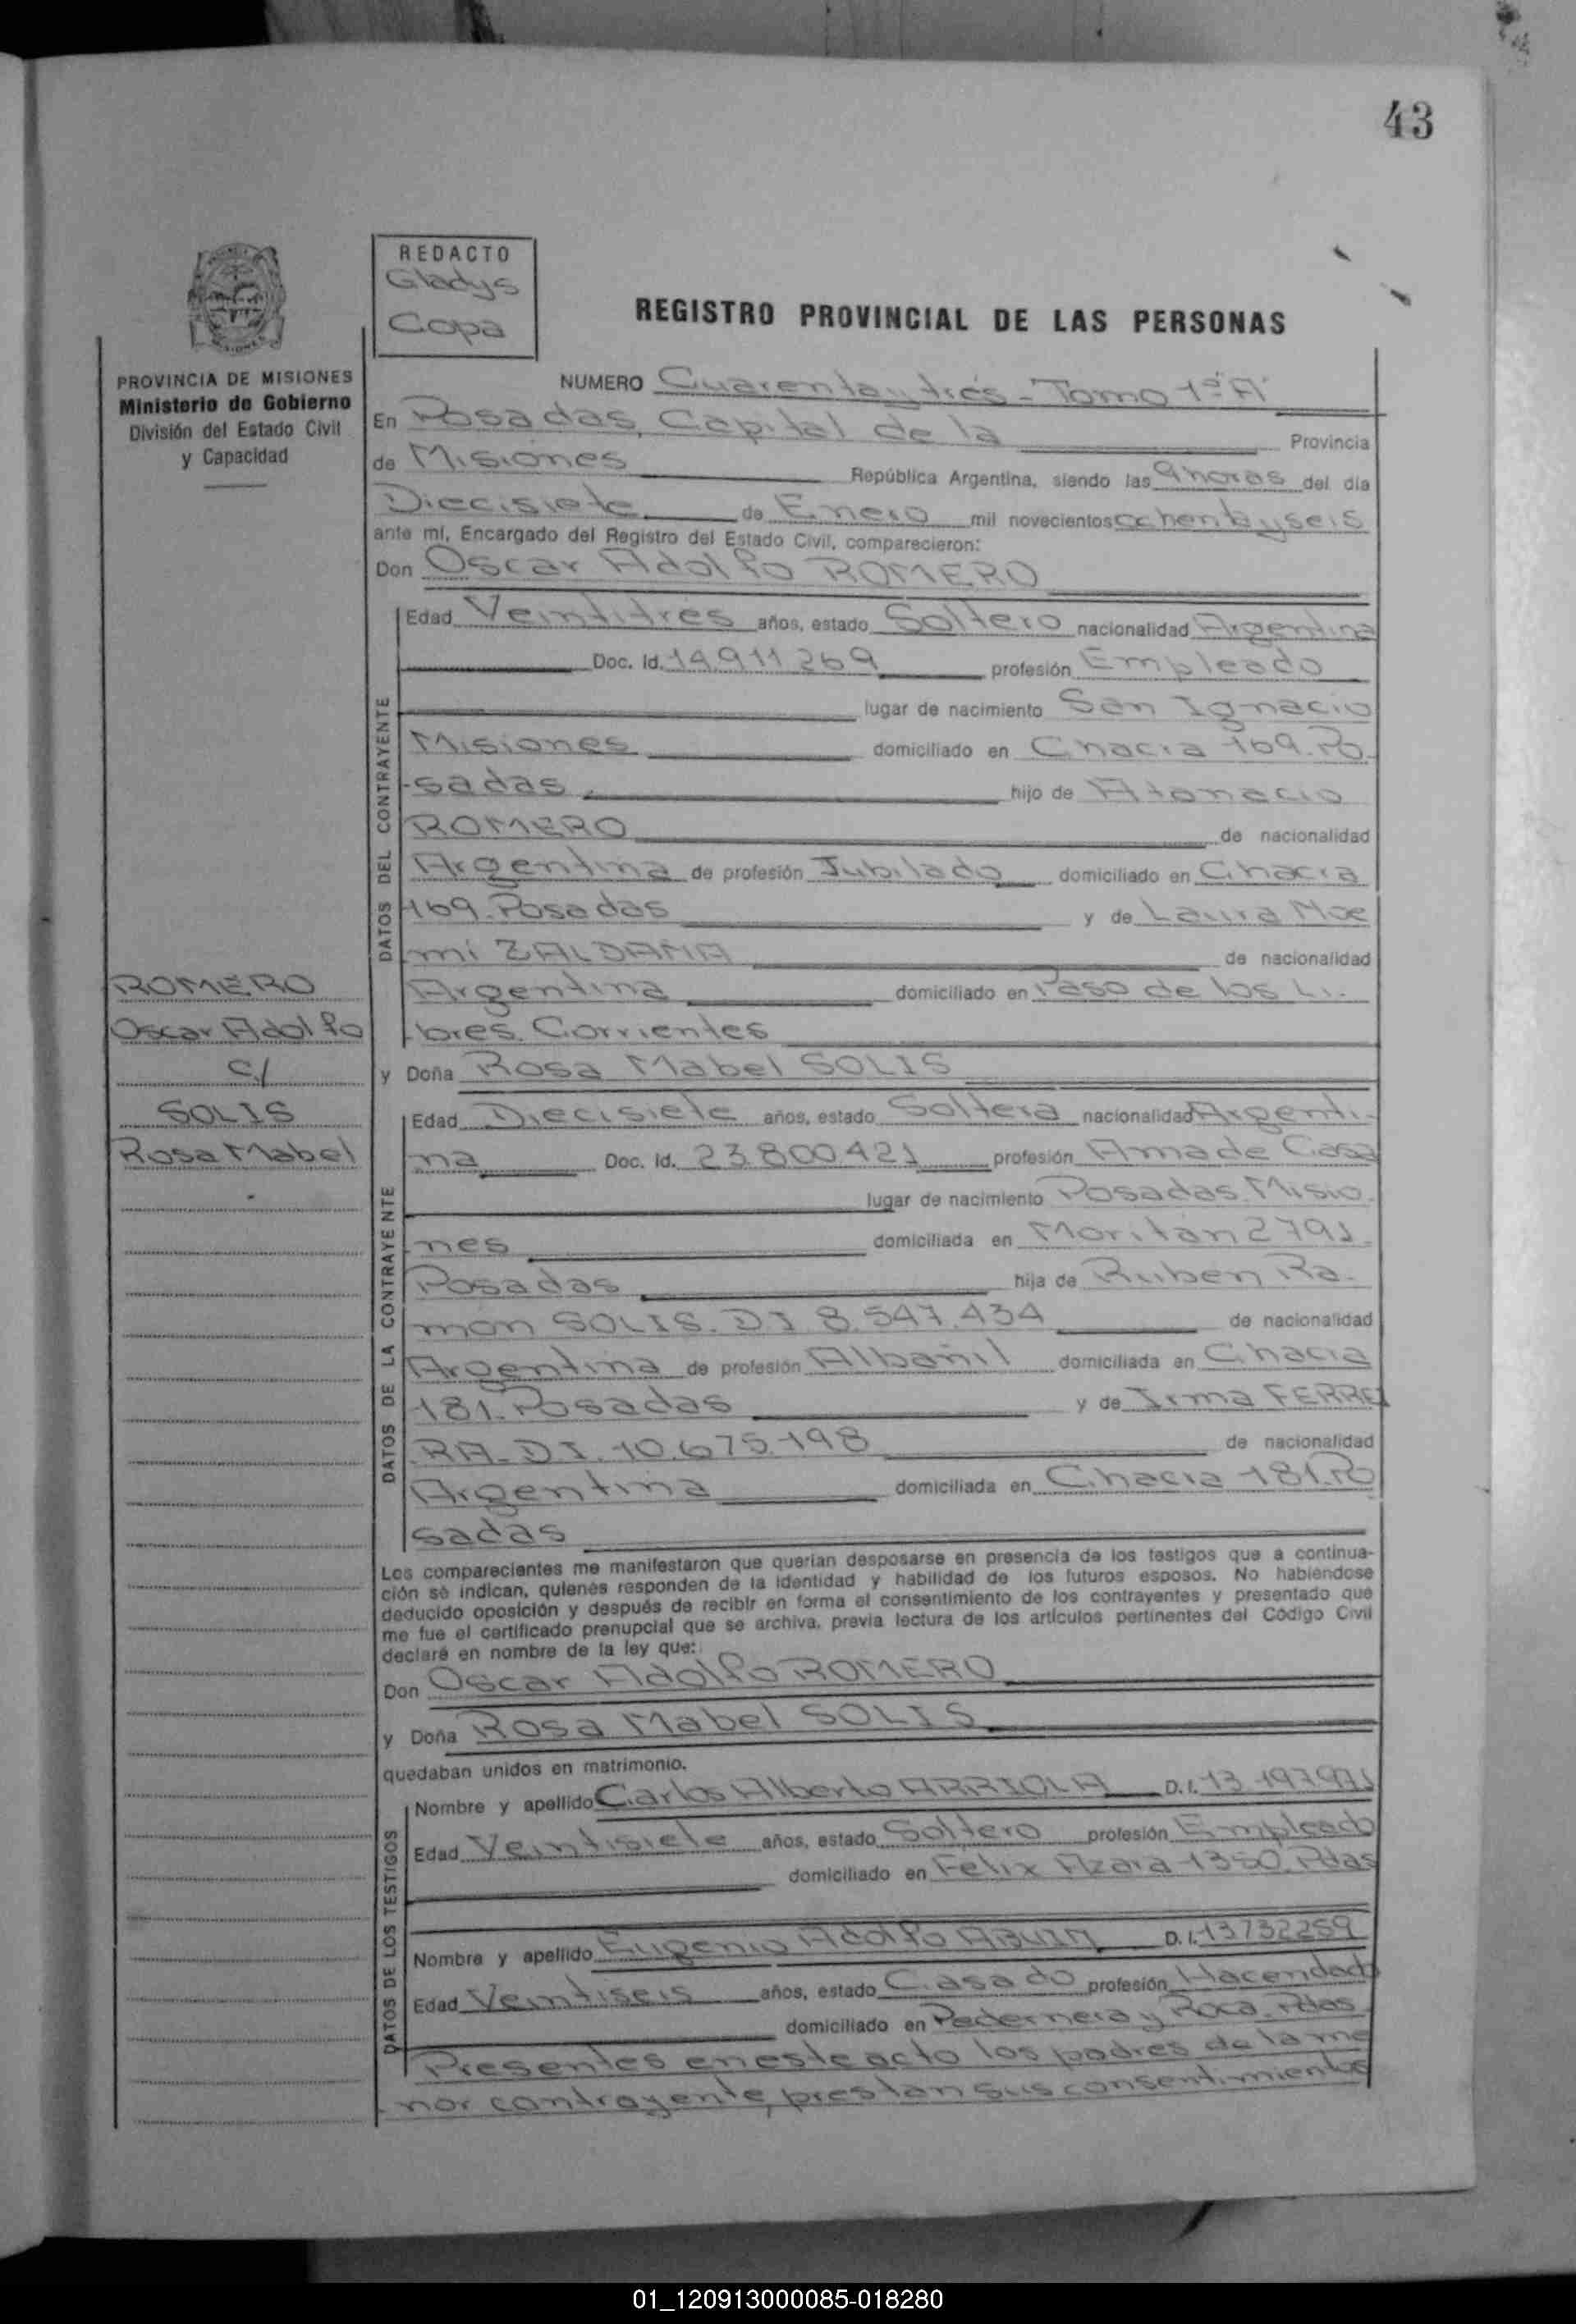 43
REDACTO
Gladys
Copa
REGISTRO PROVINCIAL DE LAS PERSONAS
PROVINCIA DE MISIONES
Ministerio de Gobierno
División del Estado Civil
y Capacidad
NUMERO Cuarenta y trés - Tomo 1º "A"
En Posadas, Capital de la Provincia
de Misiones República Argentina, siendo las 9 horas del día
Diecisiete de Enero mil novecientos ochenta y seis
ante mí, Encargado del Registro del Estado Civil, comparecieron:
Don Oscar Adolfo ROMERO
DATOS DEL CONTRAYENTE
Edad Veintitrés años, estado Soltero nacionalidad Argentina
Doc. Id. 14.911.269 profesión Empleado
lugar de nacimiento San Ignacio
Misiones domiciliado en Chacra 169. Po-
-sadas. hijo de Atanacio
ROMERO de nacionalidad
Argentina de profesión Jubilado domiciliado en Chacra
169. Posadas y de Laura Noe
mí ZALDAÑA de nacionalidad
Argentina domiciliado en Paso de los Li-
bres. Corrientes
y Doña Rosa Mabel SOLIS
ROMERO
Oscar Adolfo
c/
SOLIS
Rosa Mabel
DATOS DE LA CONTRAYENTE
Edad Diecisiete años, estado Soltera nacionalidad Argenti-
na Doc. Id. 23.800.421 profesión Ama de Casa
lugar de nacimiento Posadas. Misio-
nes domiciliada en Moritán 2791
Posadas hija de Ruben Ra-
mon SOLIS. DI 8.547.434 de nacionalidad
Argentina de profesión Albañil domiciliada en Chacra
181. Posadas y de Irma FERREI
RA - DI. 10.675.198 de nacionalidad
Argentina domiciliada en Chacra 181. Po
sadas
Los comparecientes me manifestaron que querían desposarse en presencia de los testigos que a continua-
ción se indican, quienes responden de la identidad y habilidad de los futuros esposos. No habiéndose
deducido oposición y después de recibir en forma el consentimiento de los contrayentes y presentado que
me fue el certificado prenupcial que se archiva, previa lectura de los artículos pertinentes del Código Civil
declaré en nombre de la ley que:
Don Oscar Adolfo ROMERO
y Doña Rosa Mabel SOLIS
quedaban unidos en matrimonio.
DATOS DE LOS TESTIGOS
Nombre y apellido Carlos Alberto ARRIOLA D.I. 13.197.971
Edad Veintisiete años, estado Soltero profesión Empleado
domiciliado en Felix Azara 1350. Pdas
Nombre y apellido Eugenio Adolfo ABUIN D.I. 13732259
Edad Veintiseis años, estado Casado profesión Hacendado
domiciliado en Pedernera y Roca. Pdas
Presentes en este acto los padres de la me
nor contrayente, prestan sus consentimientos
01_120913000085-018280